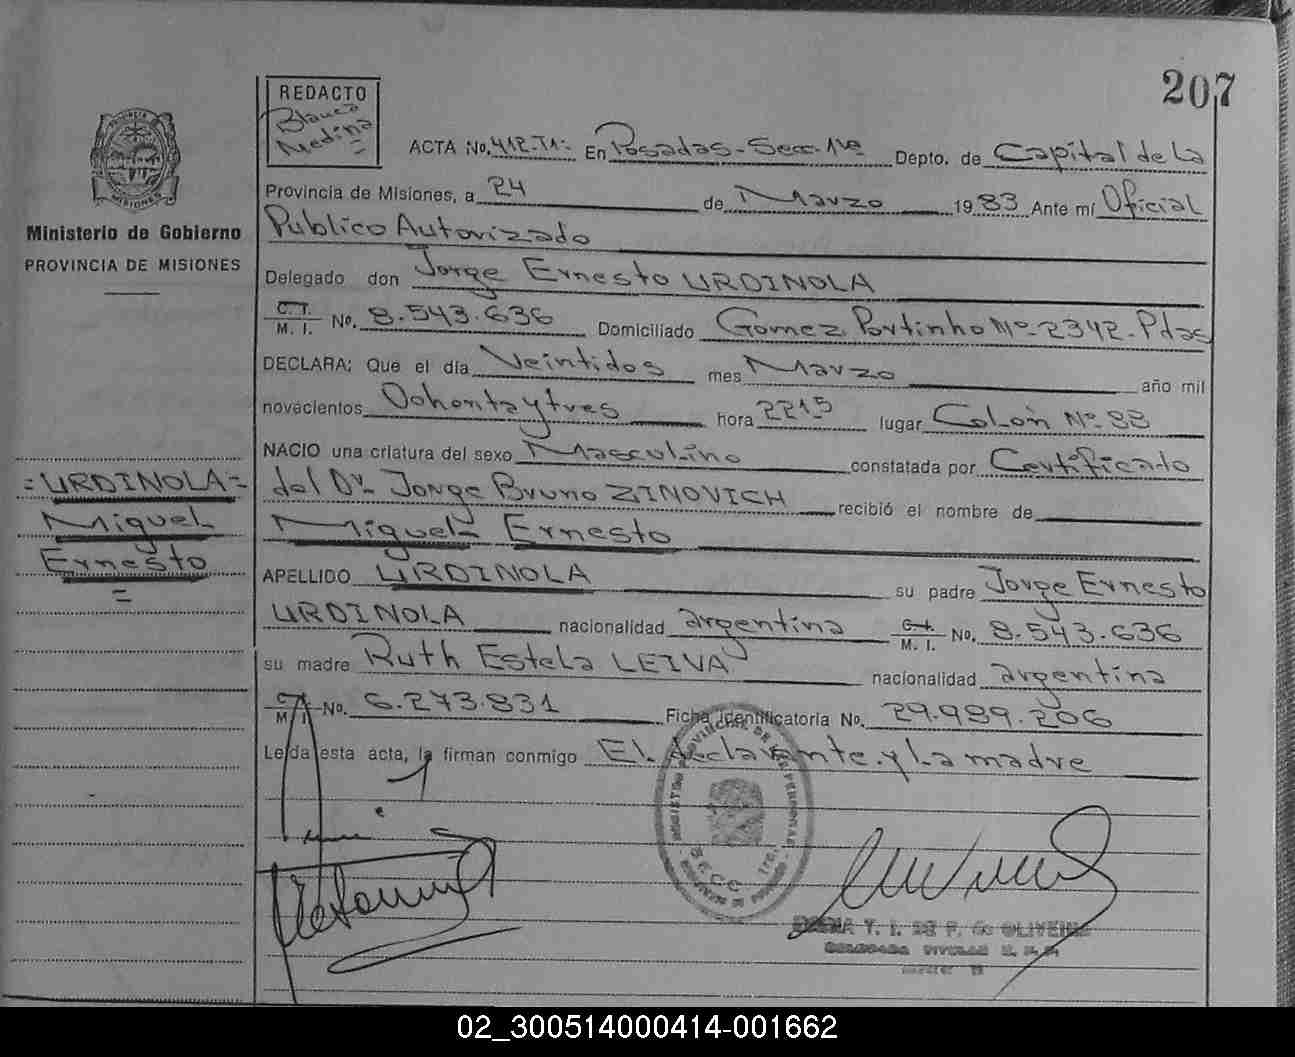 207
REDACTO
Blanca
Medina
ACTA No. 412-T1- En Posadas-Secc.1ra Depto. de Capital de La
Provincia de Misiones, a 24 de Marzo 1983 Ante mí Oficial
Publico Autorizado
Delegado don Jorge Ernesto URDINOLA
C. I. M. I. No. 8.543.636 Domiciliado Gomez Portinho Nº-2342-Pdas
DECLARA: Que el día Veintidos mes Marzo año mil
novecientos Oohentaytres hora 2215 lugar Colón Nº-83
NACIO una criatura del sexo Masculino constatada por Certificado
del Dr Jorge Bruno ZINOVICH recibió el nombre de
Miguel Ernesto
APELLIDO URDINOLA su padre Jorge Ernesto
URDINOLA nacionalidad argentina C. I. M. I. No. 8.543.636
su madre Ruth Estela LEIVA nacionalidad argentina
C. I. M. I. No. 6.273.831 Ficha Identificatoria No. 29.989.206
Leída esta acta, la firman conmigo El declarante.y La madre
PROVINCIA DE
MISIONES
Ministerio de Gobierno
PROVINCIA DE MISIONES
=URDINOLA=
Miguel
Ernesto
=
REGISTRO PROVINCIAL DE LAS PERSONAS
SECC. 1ra.
T. I. DE F. de OLIVEIRA
DELEGADA TITULAR R. P. P.
02_300514000414-001662